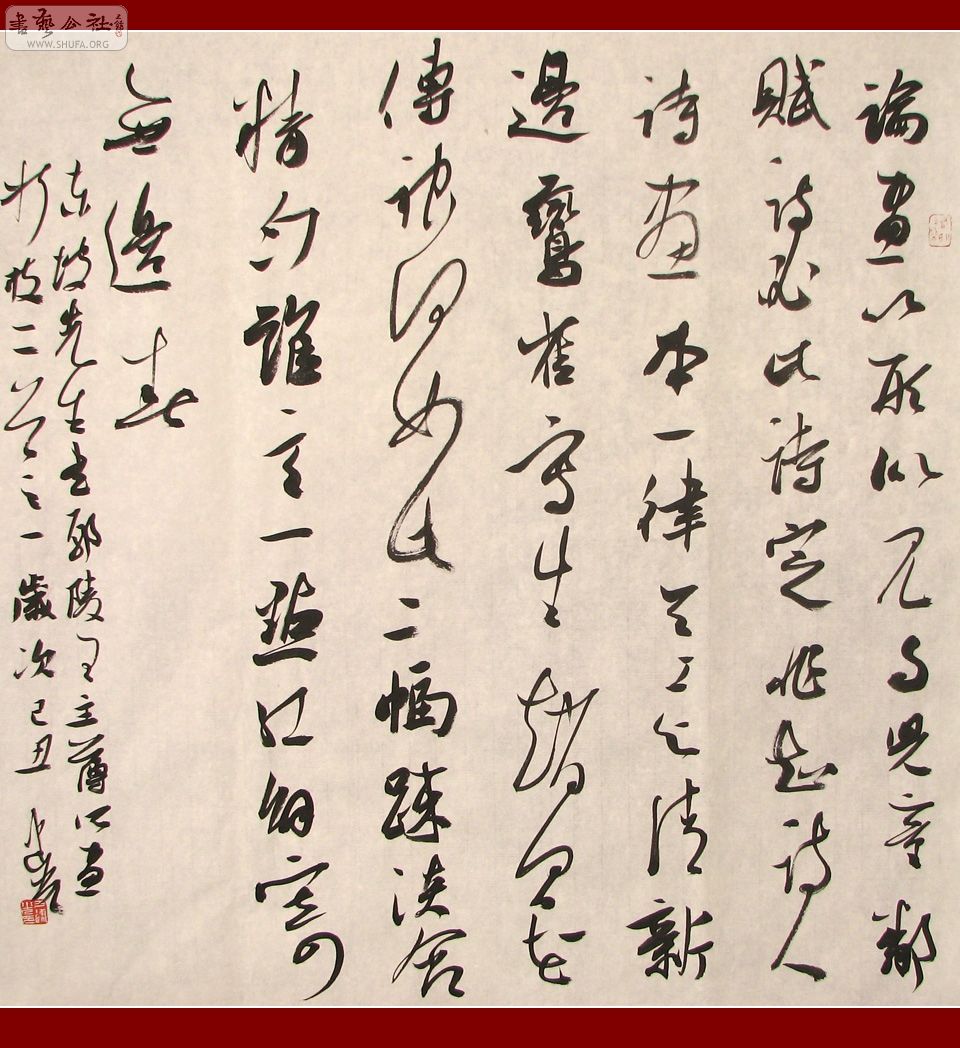 書藝公社
WWW.SHUFA.ORG
論畫以形似見与兒童鄰
賦詩必此詩定非知詩人
詩畫本一律天工与清新
邊鸞雀寫生趙昌花
傳神何如此二幅疎淡含
精勻誰言一點紅解寄
無邊春
東坡先生書鄢陵王主薄所畫
折枝二首之一歲次己丑